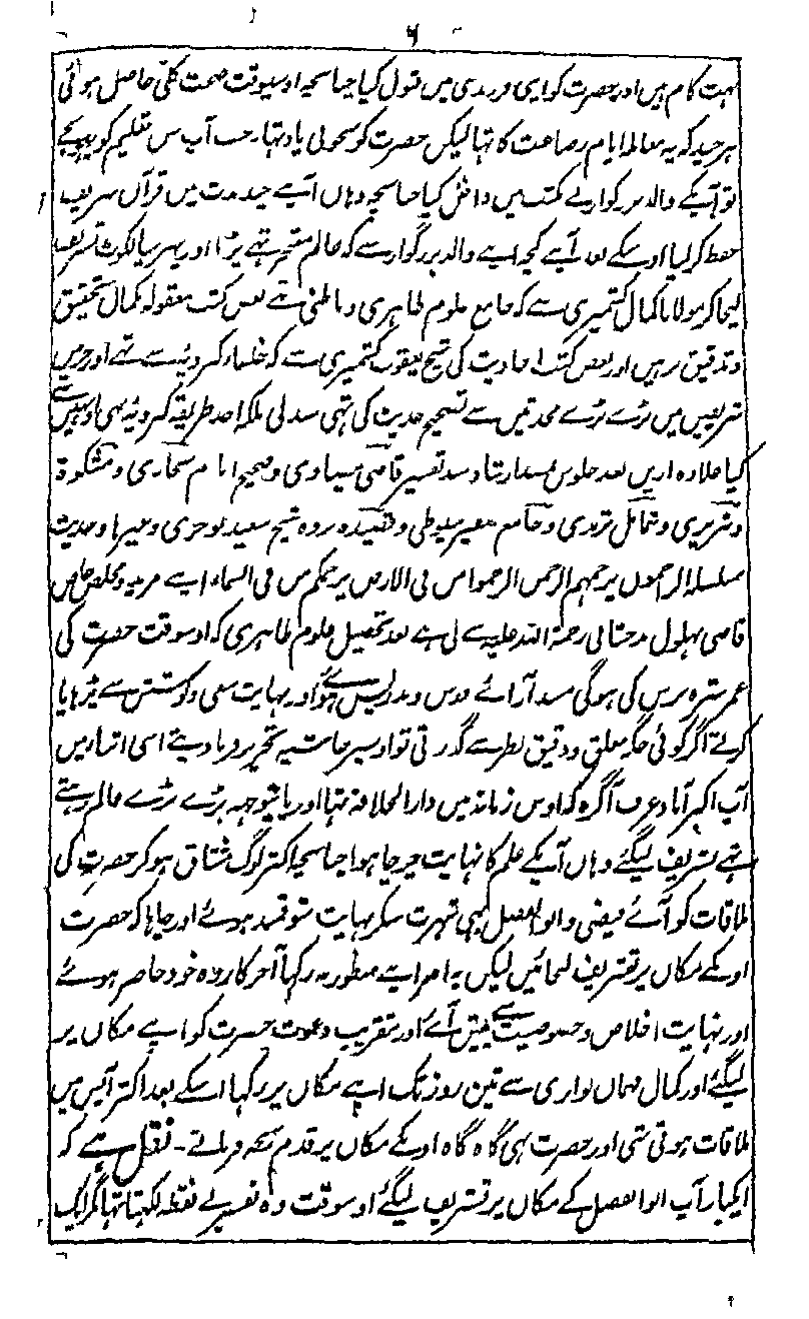 ۶
بہت کام ہیں اور حضرت کو اپنی فرزندی میں قبول کیا چنانچہ اوسیوقت صحت کلی حاصل ہوئی
ہر چند کہ یہ معاملہ ایام رضاعت کا تہا لیکن حضرت کو بخوبی یاد تہا جب آپ سن تعلیم کو پہنچے
تو آپکے والد بزرگوار نے مکتب میں داخل کیا چنانچہ وہاں آپنے چند مدت میں قرآن شریف
حفظ کر لیا اوسکے بعد آپنے کچہ اپنے والد بزرگوار سے کہ عالم متبحر تہے پڑہا اور پہر سیالکوٹ تشریف
لیجا کر مولانا کمال کشمیری سے کہ جامع علوم ظاہری و باطنی تہے بعض کتب معقولہ بکمال تحقیق
و تدقیق پڑہیں اور بعض کتب احادیث کی شیخ یعقوب کشمیری سے کہ خلفاء کبرویہ سے تہے اور حرمین
شریفین میں بڑے بڑے محدثین سے تصحیح حدیث کی تہی سند لی بلکہ اخذ طریقہ کبرویہ بہی اونہیں سے
کیا علاوہ ازیں بعد جلوس مسند ارشاد سند تفسیر قاضی بیضاوی و صحیح امام بخاری و مشکوۃ
و تبریزی و شمائل ترمذی و جامع صغیر سیوطی و قصیدہ بردہ شیخ سعید بوصیری وغیرہا و حدیث
مسلسلہ الراحمون یرحمہم الرحمن ارحموا من فی الارض یرحمکم من فی السماء اپنے مرید و مخلص خاص
قاضی بہلول بدخشانی رحمۃ اللہ علیہ سے لی ہے بعد تحصیل علوم ظاہری کہ اوسوقت حضرت کی
عمر سترہ برس کی ہوگی مسند آرائے درس و تدریس ہوئے اور نہایت سعی و کوشش سے پڑہایا
کرتے اگر کوئی جگہ مغلق و دقیق نظر سے گذرتی تو اوسپر حاشیہ تحریر فرما دیتے اسی اثناء میں
آپ اکبرآباد عرف آگرہ کہ اوس زمانہ میں دارالخلافہ تہا اور باینوجہ بڑے بڑے عالم رہتے
تہے تشریف لیگئے وہاں آپکے علم کا نہایت چرچا ہوا چنانچہ اکثر لوگ مشتاق ہوکر حضرت کی
ملاقات کو آئے فیضی و ابوالفضل بہی شہرت سنکر نہایت شوقمند ہوئے اور چاہا کہ حضرت
اونکے مکان پر تشریف لیجائیں لیکن یہ امر آپنے منظور نہ رکہا آخر کار وہ خود حاضر ہوئے
اور نہایت اخلاص و خصوصیت سے پیش آئے اور بتقریب دعوت حضرت کو اپنے مکان پر
لیگئے اور کمال مہمان نوازی سے تین روز تک اپنے مکان پر رکہا اسکے بعد اکثر آپس میں
ملاقات ہوتی تہی اور حضرت بہی گاہ گاہ اونکے مکان پر قدم رنجہ فرماتے - نقل ہے کہ
ایکبار آپ ابوالفضل کے مکان پر تشریف لیگئے اوسوقت وہ تفسیر بے نقطہ لکہتا تہا مگر ایک